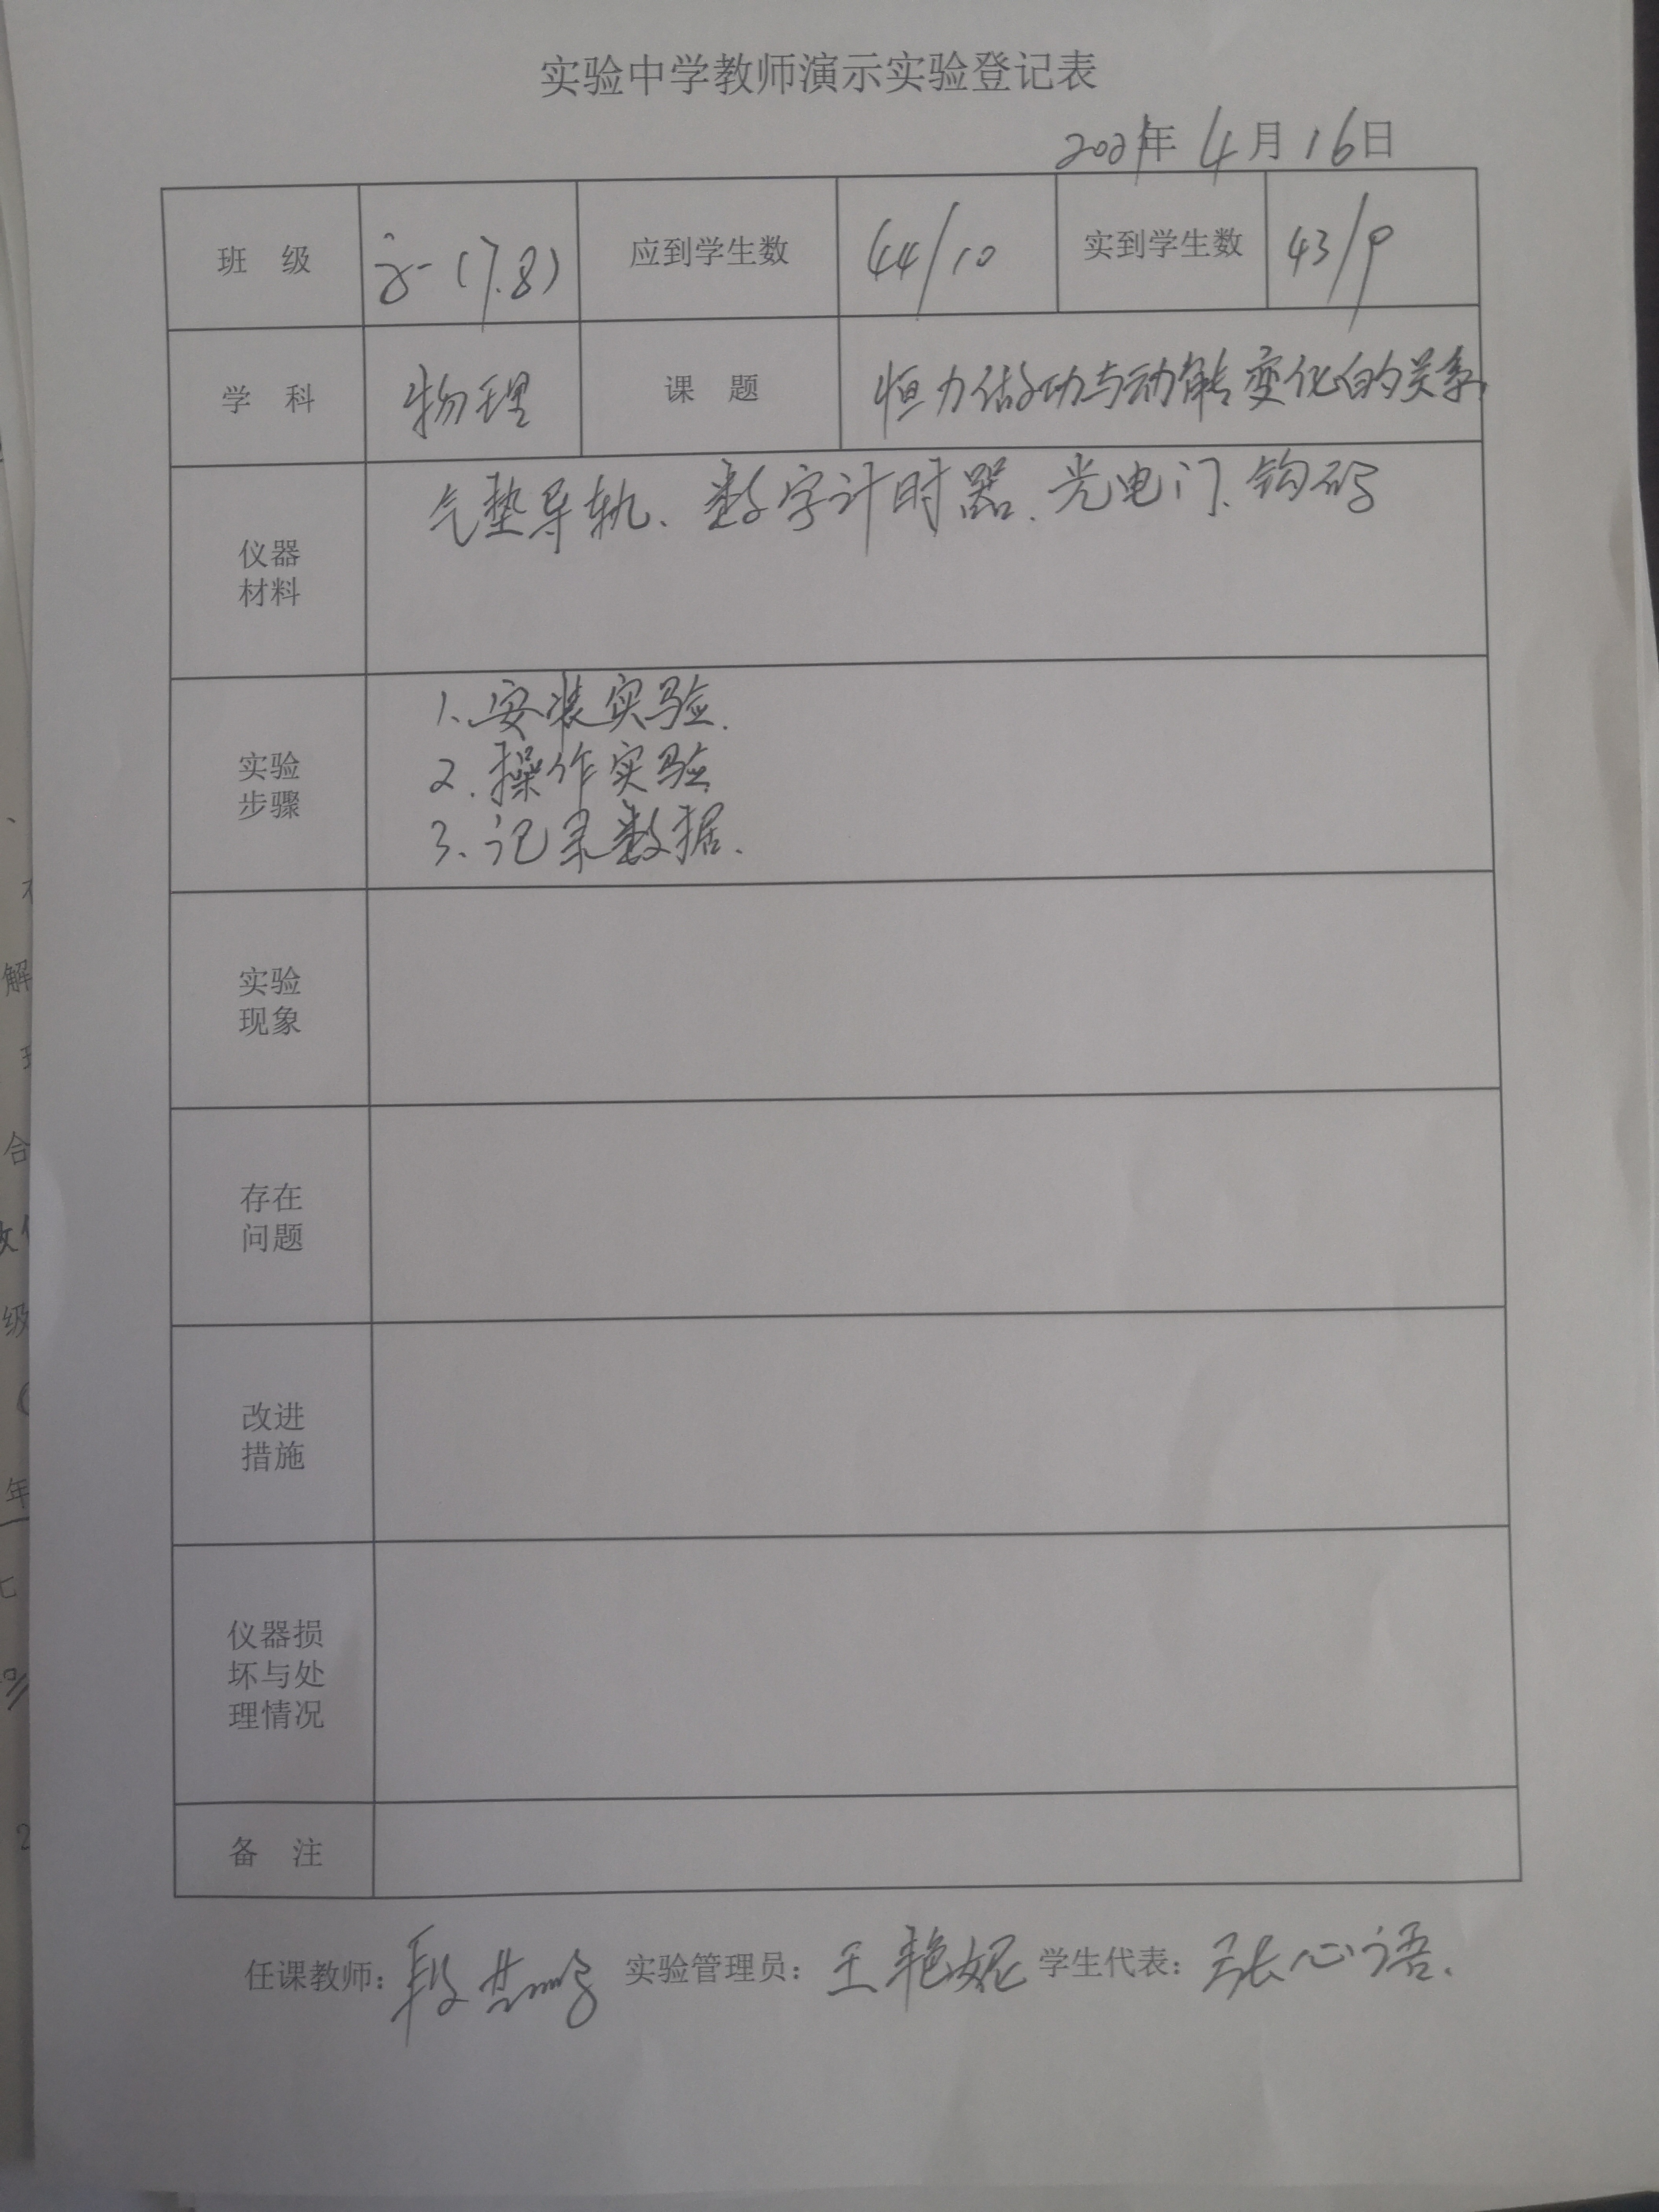 实验中学教师演示实验登记表
2021年 4月16日
班 级 高一(7.8) 应到学生数 44/10 实到学生数 43/9
学 科 物理 课 题 恒力做功与动能变化的关系
气垫导轨、数字计时器、光电门、钩码
仪器
材料
1、安装实验.
2.操作实验
3、记录数据.
实验
步骤
实验
现象
存在
问题
改进
措施
仪器损
坏与处
理情况
备 注
任课教师: 段 实验管理员: 王艳妮 学生代表: 张心语.
解
合
级
年
2